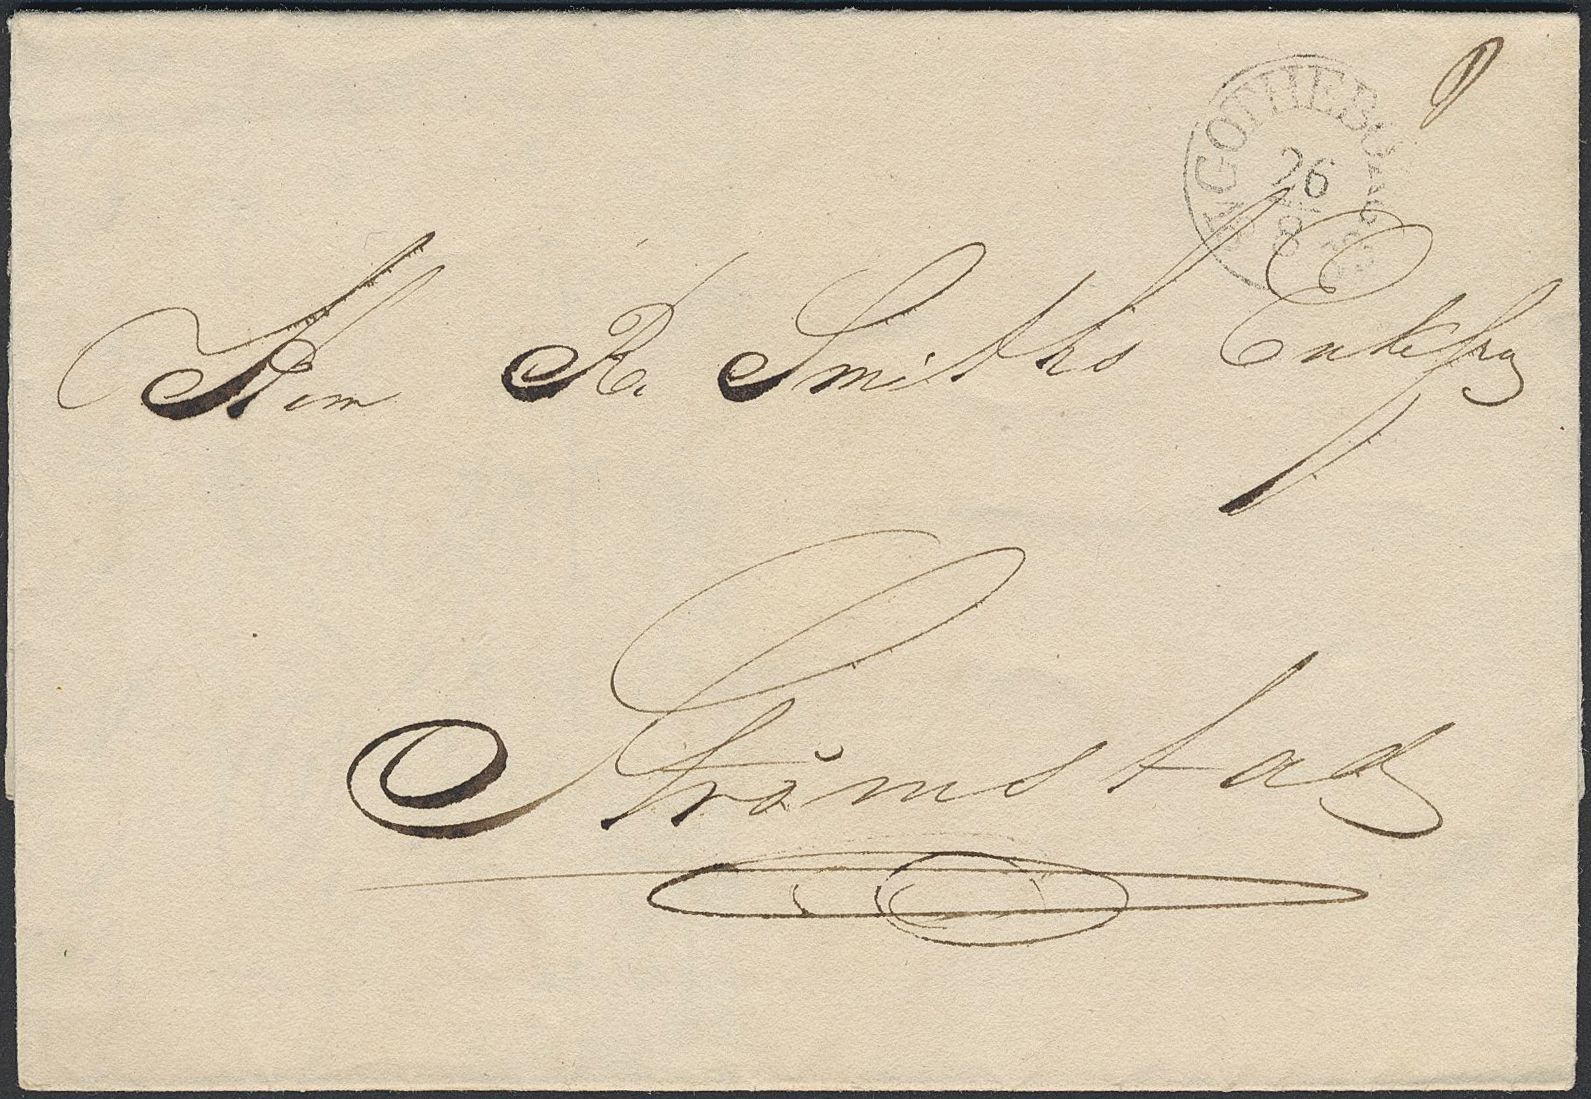 GÖTHEBORG
26
8
R. Smiths Enkefru
Strömstad